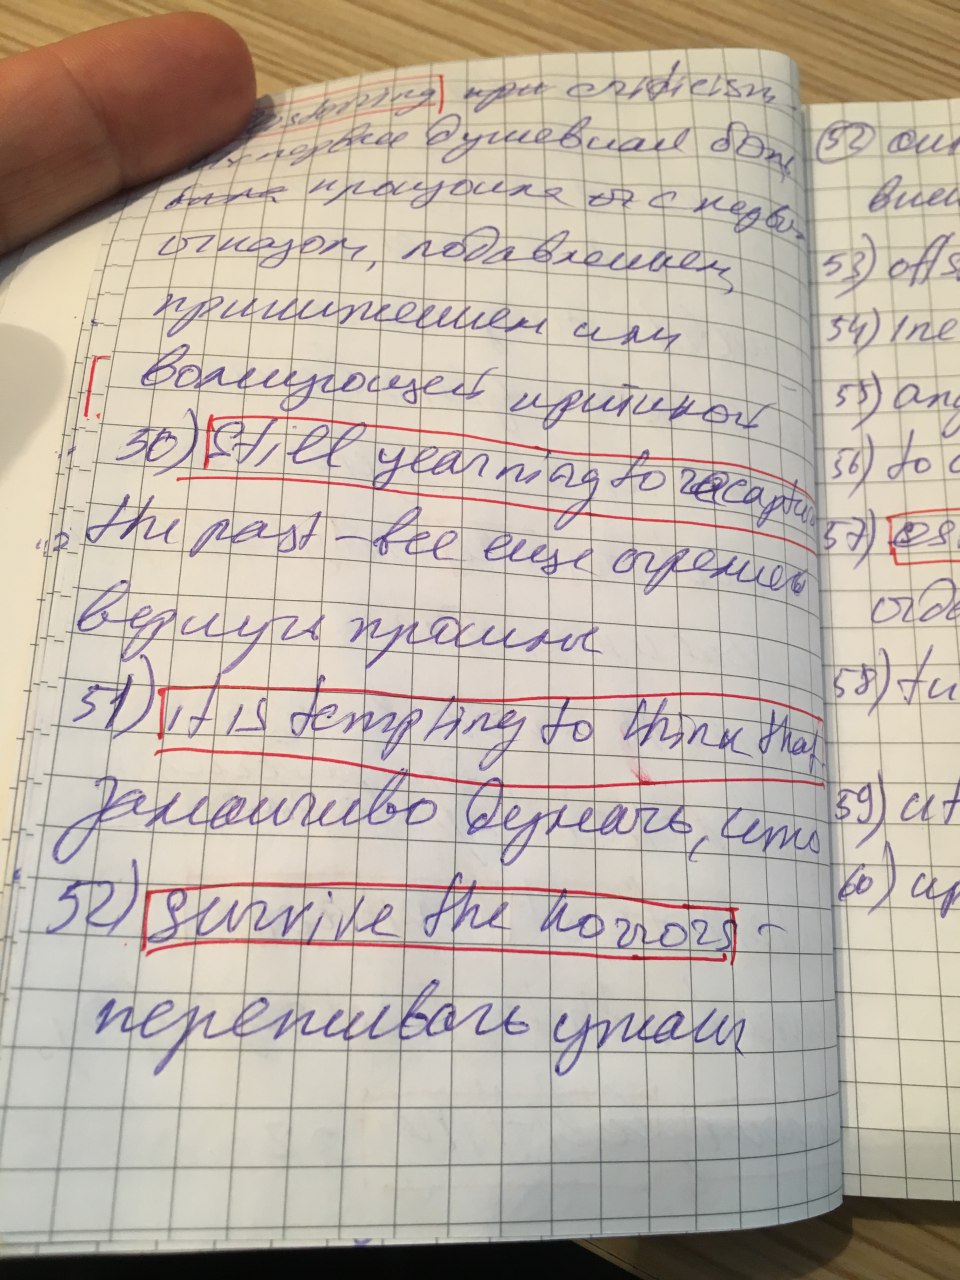 при criticism
душевная боль
произошла от с недо
отказом, подавлением,
принижением или
волнующей критикой
50) Still yearning to recapture
the past – все еще стремлюсь
вернуть прошлое
51) it is tempting to think that
заманчиво думать, что
52) survive the horrors –
переживать ужасы
52)
53) offs
54) Ine
55) ang
56) to c
57) es
58) fu
59)
60)